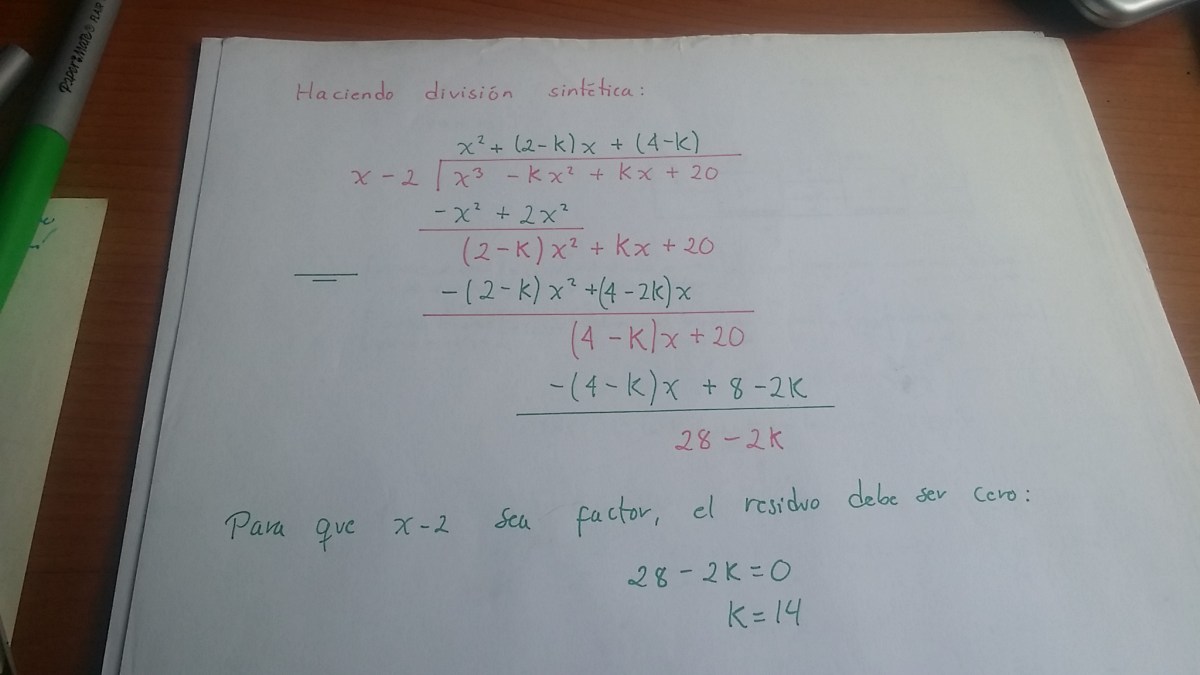 Paper Mate® FLAIR
Haciendo división sintética:
x² + (2-k)x + (4-k)
x - 2 | x³ - kx² + kx + 20
-x² + 2x²
(2-k)x² + kx + 20
-(2-k)x² +(4-2k)x
(4-k)x + 20
-(4-k)x + 8-2k
28-2k
Para que x-2 sea factor, el residuo debe ser cero:
28-2k=0
k=14